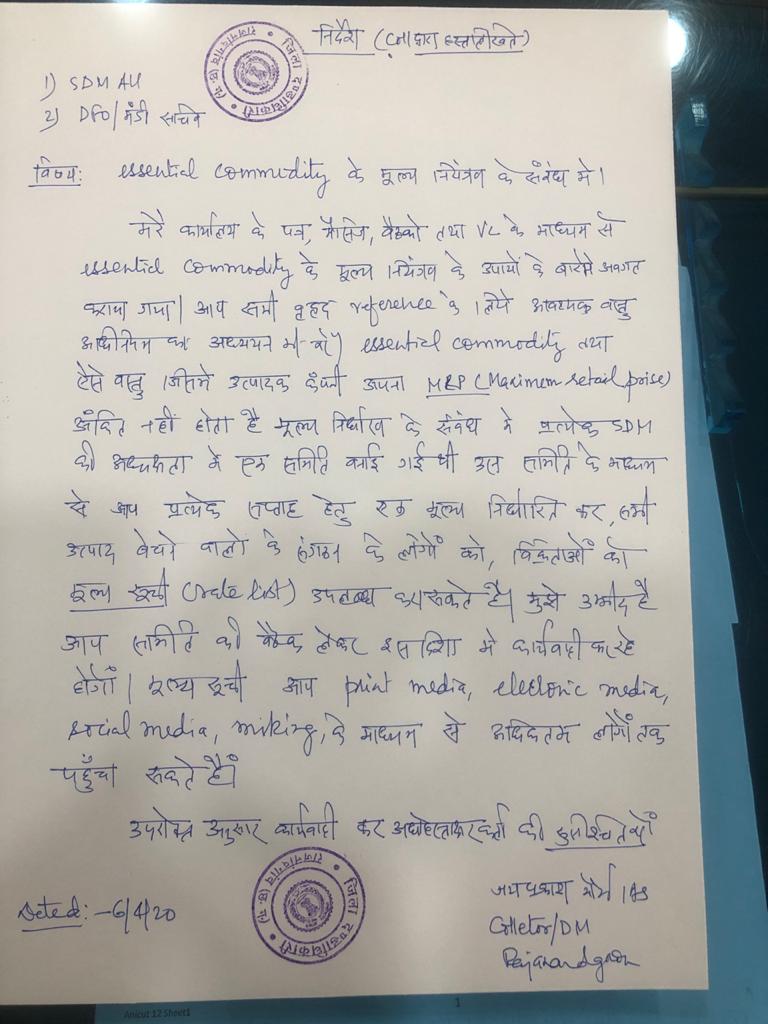 निर्देश (मेरे द्वारा हस्तलिखित)
जिला दण्डाधिकारी
राजनांदगांव (छ. ग.)
1) SDM All
2) DFO/मंडी सचिव
विषय: essential commodity के मूल्य नियंत्रण के संबंध मे।
मेरे कार्यालय के पत्र, मैसेज, बैठको तथा VC के माध्यम से
essential commodity के मूल्य नियंत्रण के उपायों के बारेमे अवगत
कराया गया। आप सभी वृहद reference के लिये आवश्यक वस्तु
अधिनियम का अध्ययन भी करें। essential commodity तथा
ऐसे वस्तु जिसमे उत्पादक कंपनी अपना MRP (Maximem retail prise)
अंकित नहीं होता है मूल्य निर्धारण के संबंध मे प्रत्येक SDM
की अध्यक्षता मे एक समिति बनाई गई थी उस समिति के माध्यम
से आप प्रत्येक सप्ताह हेतु एक मूल्य निर्धारित कर, सभी
उत्पाद बेचने वालो के संगठन के लोगों को, विक्रेताओं को
मूल्य सूची (rate list) उपलब्ध करा सकते है। मुझे उम्मीद है
आप समिति की बैठक लेकर इस दिशा मे कार्यवाही कर रहे
होंगें। मूल्य सूची आप print media, electonic media,
social media, miking, के माध्यम से अधिकतम लोगों तक
पहुँचा सकते है।
उपरोक्त अनुसार कार्यवाही कर अधोहस्ताक्षरकर्ता को
जिला दण्डाधिकारी
राजनांदगांव (छ. ग.)
Dated: -6/4/20
जयप्रकाश मौर्य IAS
Colletor/DM
Rajnandgaon
Anicut 12 Sheet1
1